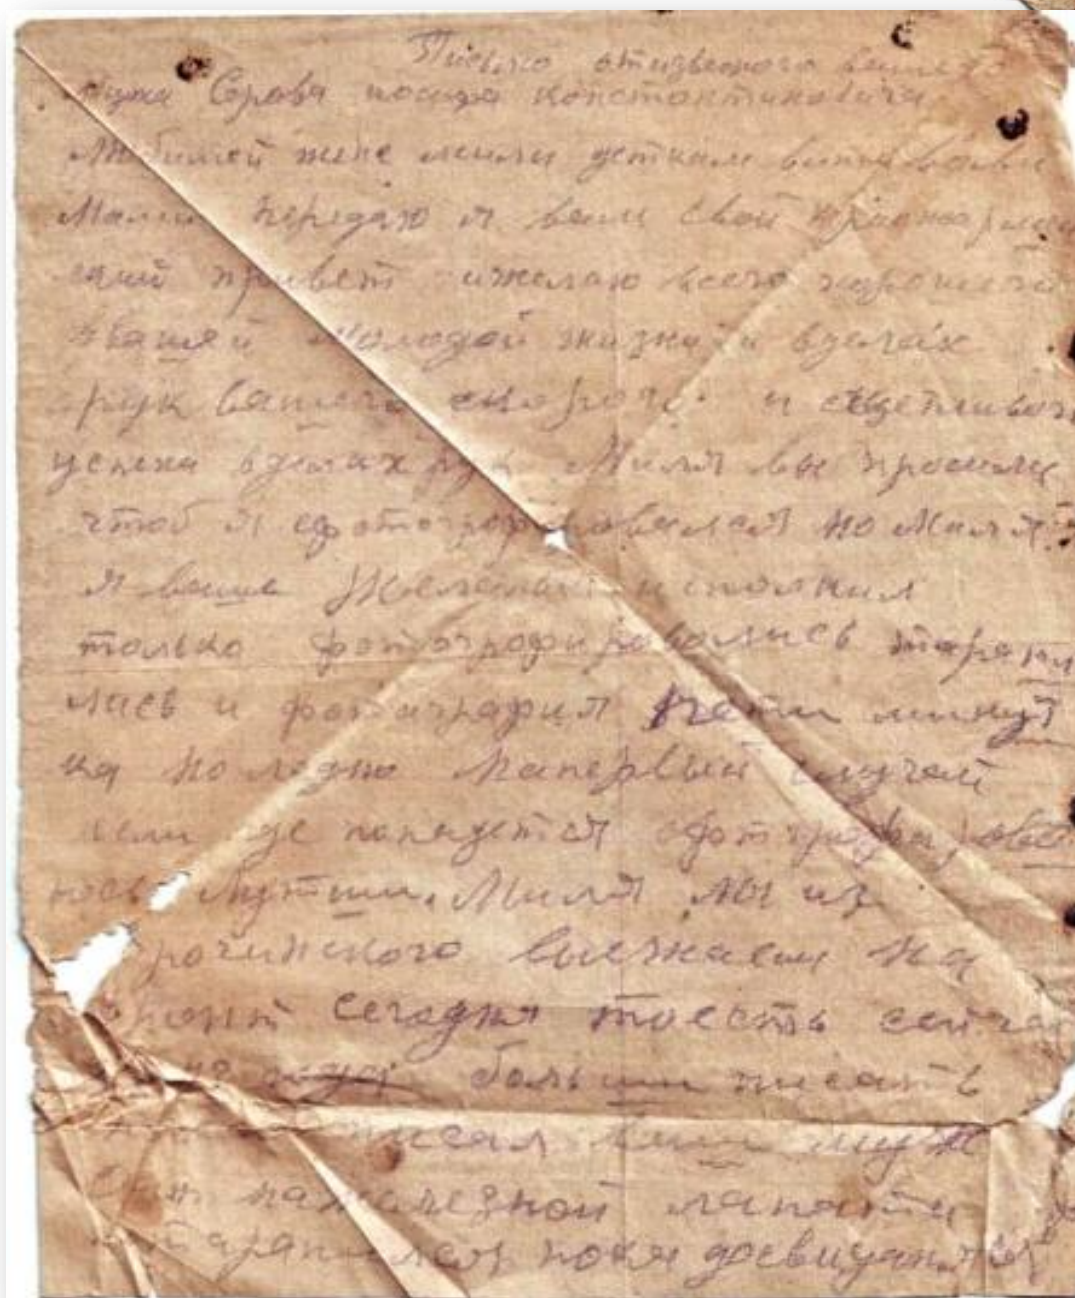 Письмо отизвесного вашего
мужа Серова иосифа константиновича
Любимой жене мили деткам вити вали
Мамаши передаю я вам свой красноармей
ский привет ижелаю всего хорошего
ввашей молодой жизни и вделах
рук вашего скорого и сщетливого
успеха вделах рук Миля вы просили
чтоб я сфотографировался но Миля
я ваше Желание исполнил
только фотографировались торопи
лись и фотография пяти минут
ка но ладно напервый случай
если где попадется сфотографирова
Миля мы из
рочинского выежаем на
фронт сегодня тоесть сейчас
больши писать
писал ваш муж
нажелезной лапати
пока досвидания